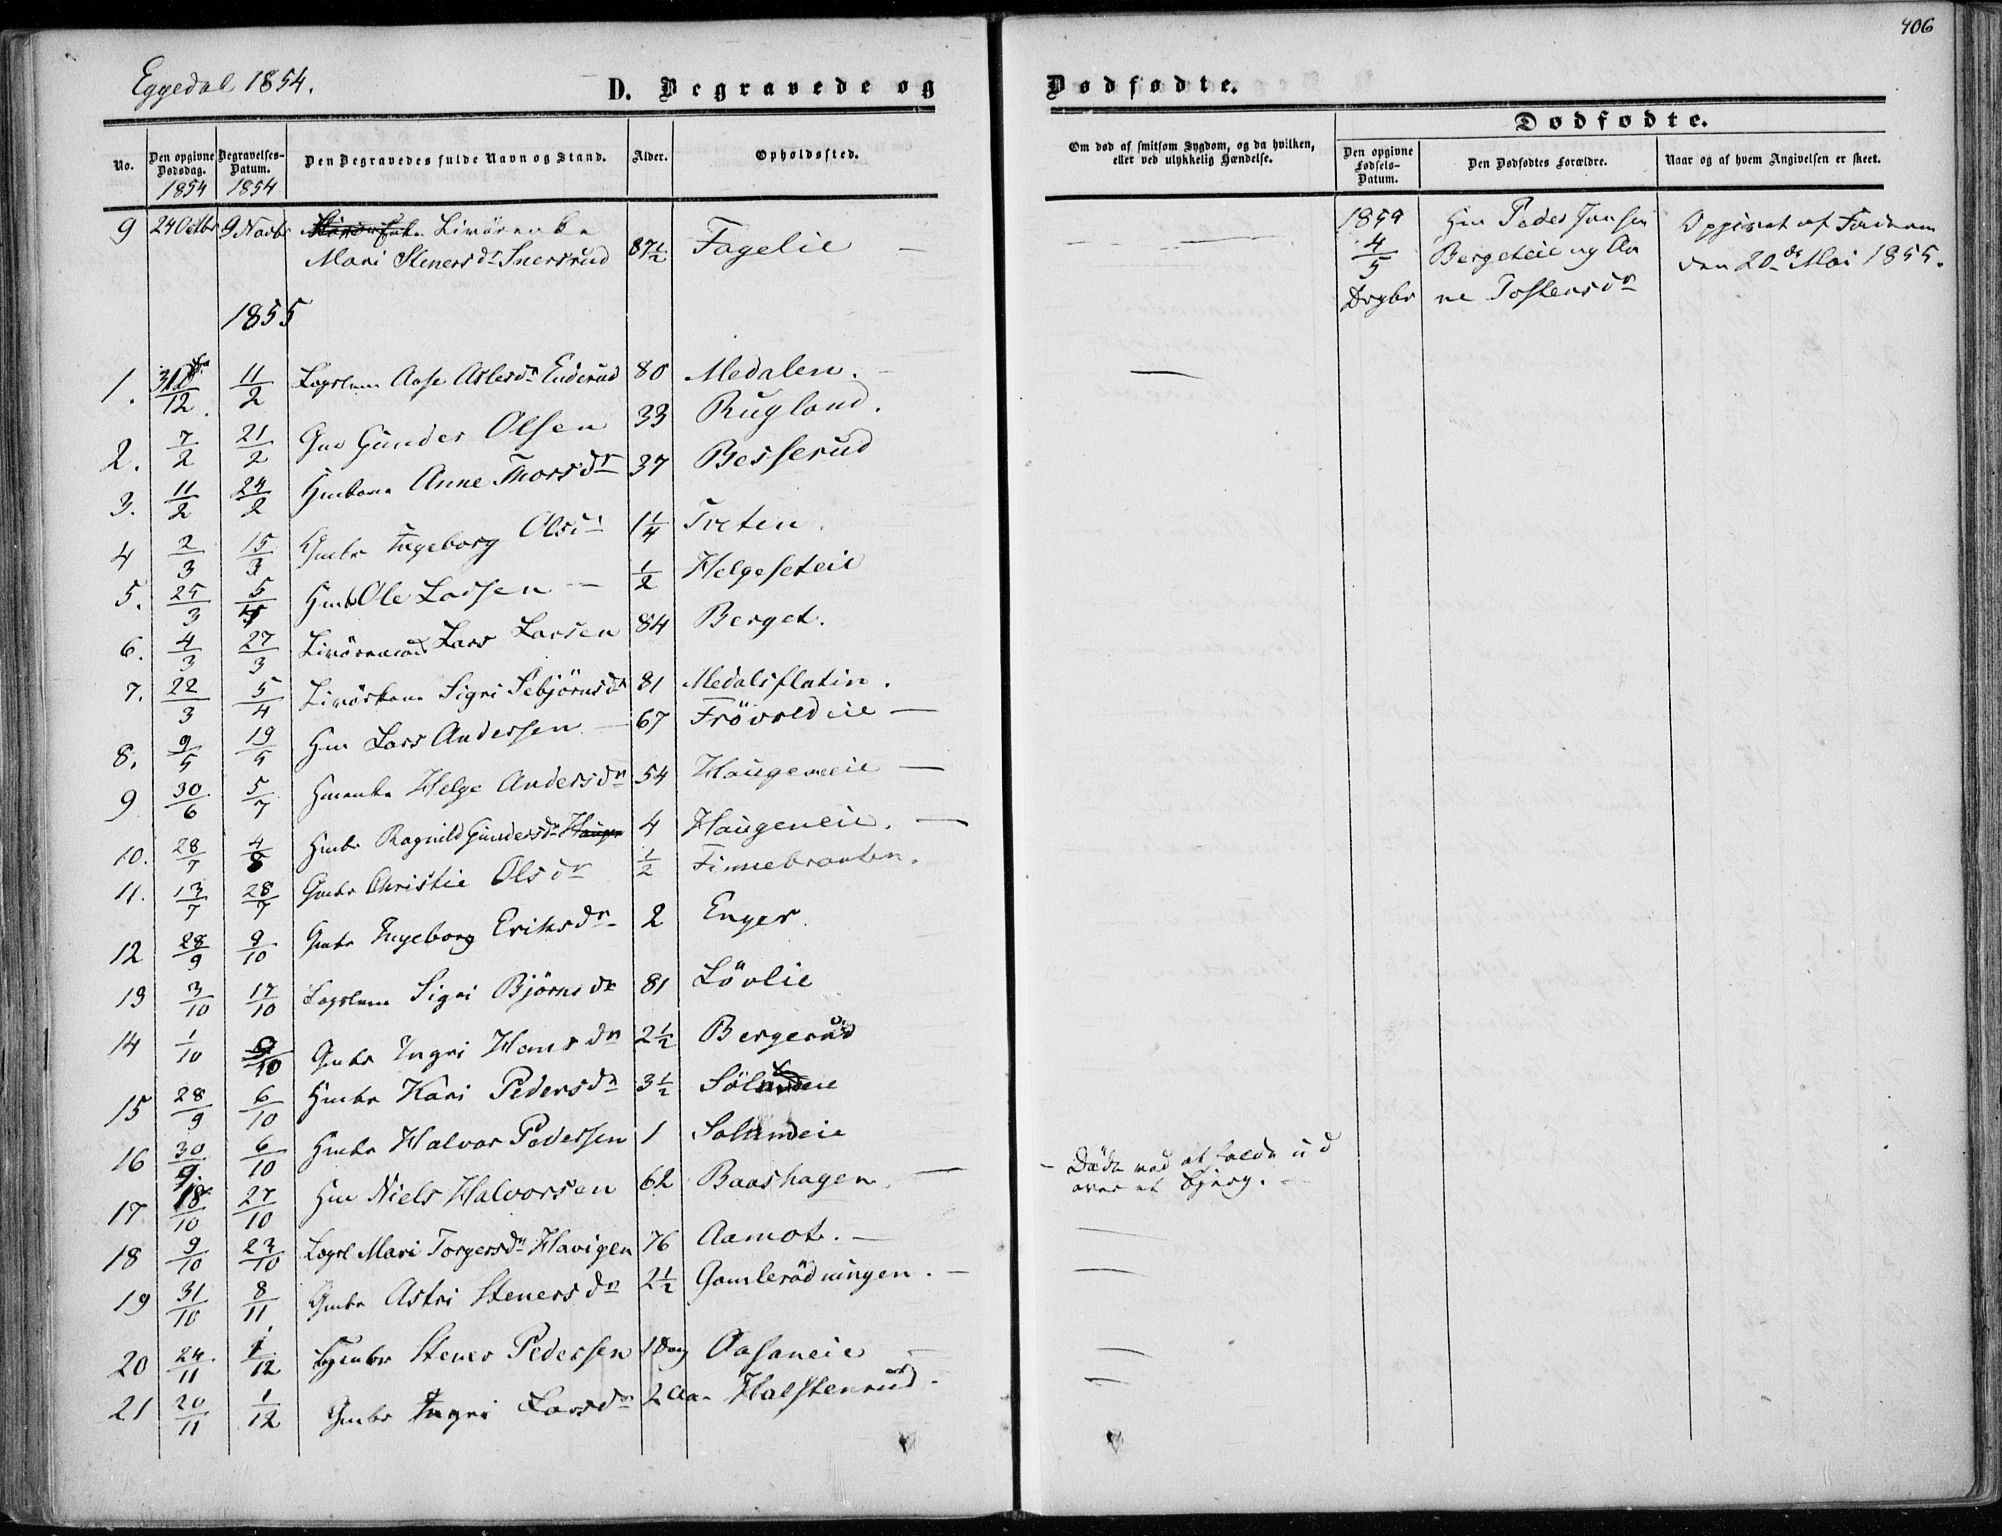 406
Eggedal 1854.
D. Begravede og Dødfødte.
No.
Den opgivne Dødsdag.
1854
Begravelses-Datum.
1854
Den Begravedes fulde Navn og Stand.
Alder.
Opholdssted.
Om død af smitsom Sygdom, og da hvilken, eller ved ulykkelig Hændelse.
Dødfødte.
Den opgivne Fødsels-Datum.
Den Dødfødtes Forældre.
Naar og af hvem Angivelsen er skeet.
9 24 Octbr 9 Novbr Livörenke
Mari Steners dr Snersrud 87½ Fagelie —
4/5 Hm Peder Jansen
Bergeteie og An
ne Tostensdr
Opgivet af
den 20de Mai 1855.
1855
1. 31/12 11/2 Lægslem Aase Aslesdr Enderud 80 Medalen.
2. 7/2 21/2 Gm Gunder Olsen 33 Rugland.
3. 11/2 24/2 Hmkone Anne Thorsdr 37 Besserud
4 2/3 15/3 Gmbr Ingeborg Olsdr 1¼ Treten.
5. 25/3 5/4 Hmbr Ole Larsen — ½ Helgeseteie
6. 4/3 27/3 Livöremand Lars Larsen 84 Berget.
7. 22/3 5/4 Livörkone Sigri Sebjörnsdr 81 Medalsflatin.
8. 9/5 19/5 Hm Lars Andersen — 67 Frövoldeie —
9 30/6 5/7 Hmenke Helge Andersdr 54 Haugeneie —
10. 28/7 4/8 Hmbr Ragnild Gundersdr Haugen 4 Haugeneie. —
11. 13/7 28/7 Gmbr Christie Olsdr ½ Finnebraaten.
12 28/9 9/10 Gmbr Ingeborg Eriksdr 2 Enger
13 3/10 17/10 Lægslem Sigri Björnsdr 81 Lövlie
14 1/10 9/10 Gmbr Ingri Hansdr 2½ Bergerud
15 28/9 6/10 Hmbr Kari Pedersdr 3½
16 30/9. 6/10 Hmbr Halvor Pedersen 1 Solumeie
17 18/10 27/10 Hm Niels Halvorsen 62 Baashagen. — — Döde ved at falde ud
over et Bjerg. —
18 9/10 23/10 Lægsl Mari Torgersdr Havigen 76 Aamot. —
19 31/10 8/11 Gmbr Astri Stenersdr 2½ Gamlerödningen. —
20 24/11 1/12 Hmbr Stener Pedersen 1 Dag Aasaneie
21 20/11 1/12 Gmbr Ingri Larsdr 2 Aar Halstenrud.